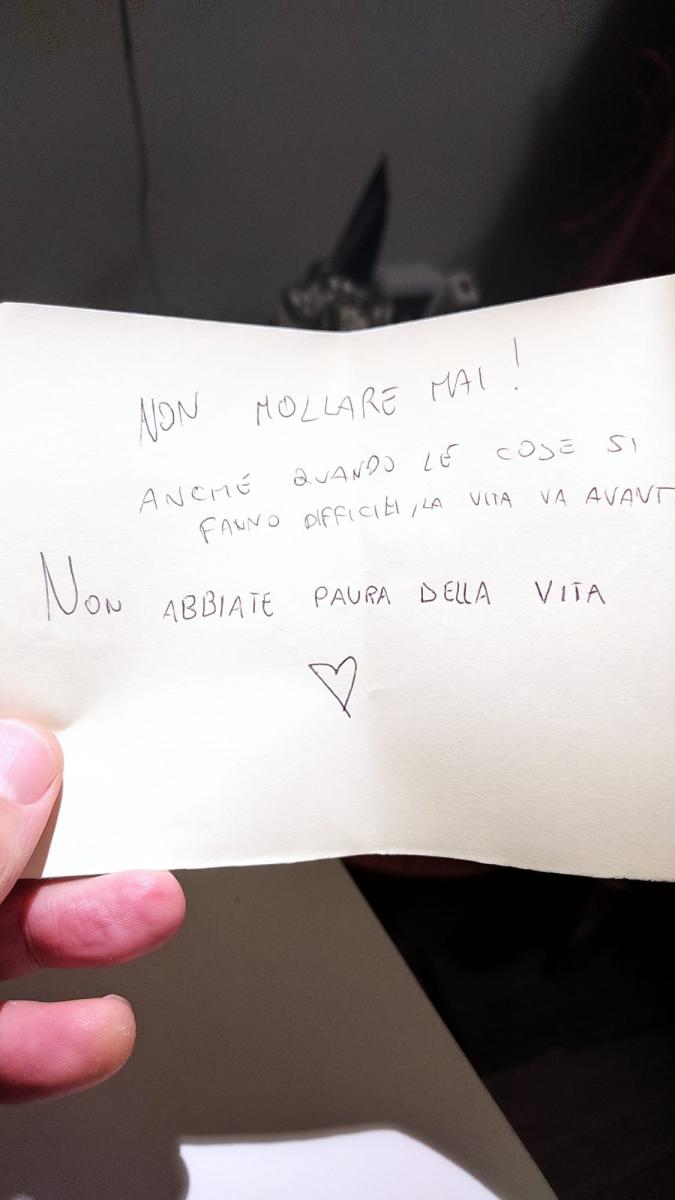 NON MOLLARE MAI!
ANCHE QUANDO LE COSE SI
FANNO DIFFICILI, LA VITA VA AVANTI
NON ABBIATE PAURA DELLA VITA